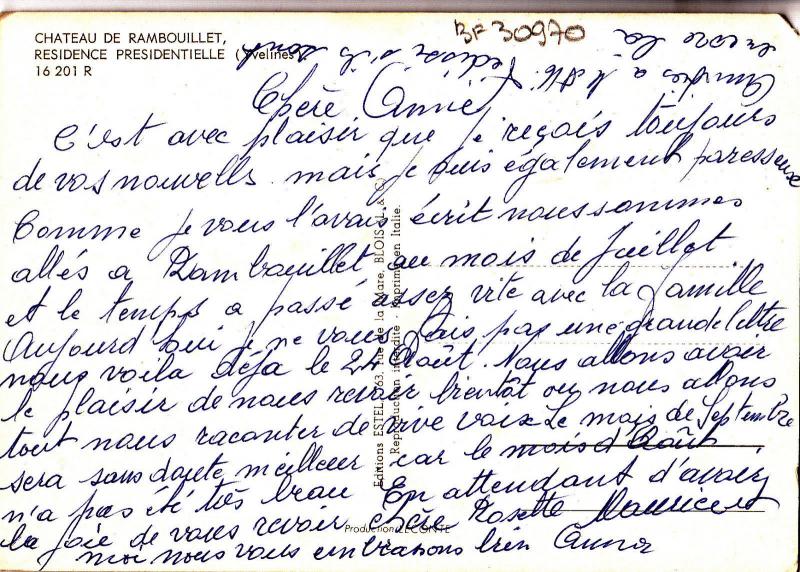 CHATEAU DE RAMBOUILLET,
RESIDENCE PRESIDENTIELLE (Yvelines)
16 201 R
BF 30970
encore la
Amitiés à
Chère Annie
C'est avec plaisir que je reçois toujours
de vos nouvells mais je suis également paresseuse
Comme je vous l'avais écrit nous sommes
allés a Rambouillet au mois de Juillet
et le temps a passé assez vite avec la famille
Aujourd'hui je ne vous fais pas une grande lettre
nous voila déja le 24 Août. Nous allons avoir
le plaisir de nous revoir bientôt ou nous allons
tout nous raconter de vive voix Le mois de Septembre
sera sans doute meilleur car le mois d'Août
n'a pas été très beau En attendant d'avoir
la joie de vous revoir chère Rosette Maurice et
moi nous vous embrassons bien
Editions ESTEL, 63, rue de la Mare, BLOIS (L. & C.)
Reproduction interdite - Imprimé en Italie.
Production LECONTE